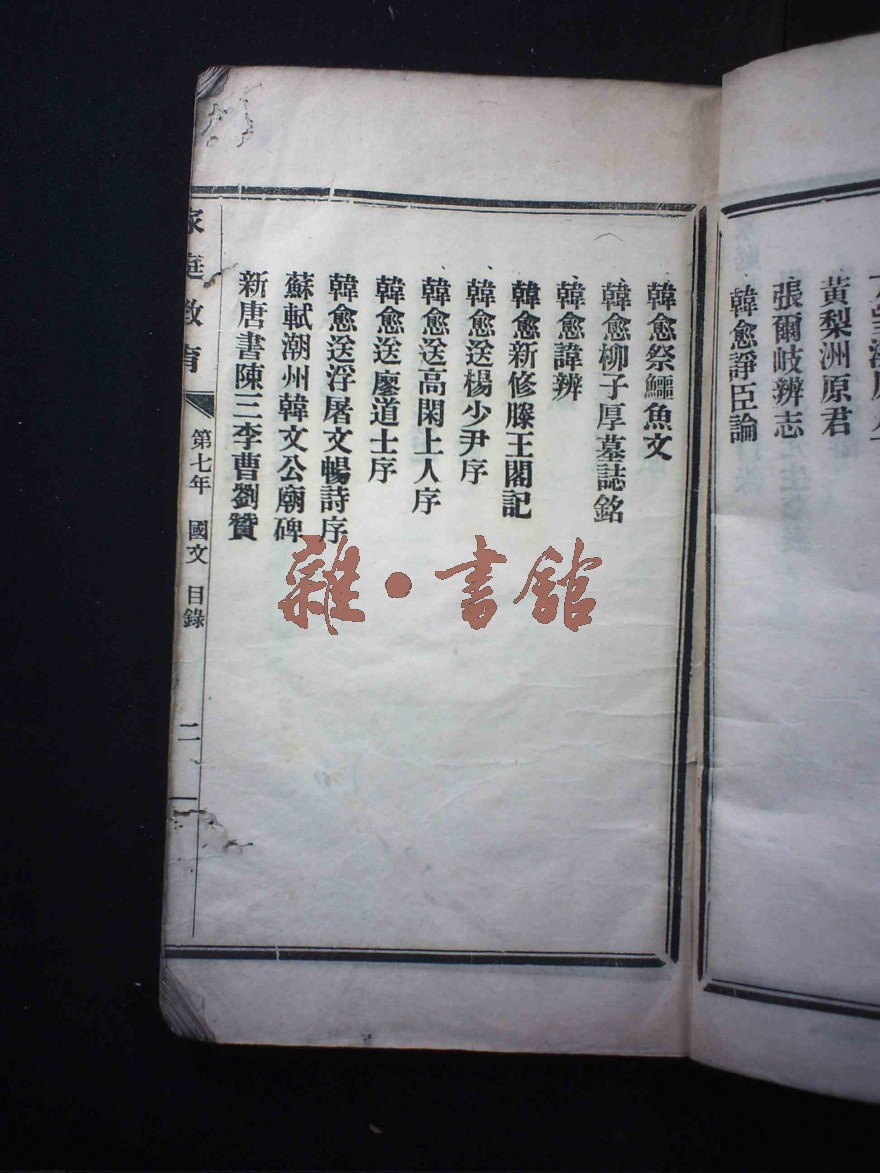 黃梨洲原君
張爾岐辨志
韓愈諍臣論
韓愈祭鱷魚文
韓愈柳子厚墓誌銘
韓愈諱辨
韓愈新修滕王閣記
韓愈送楊少尹序
韓愈送高閑上人序
韓愈送廖道士序
韓愈送浮屠文暢詩序
蘇軾潮州韓文公廟碑
新唐書陳三李曹劉贊
家庭教育 第七年 國文 目錄 二
雜·書館